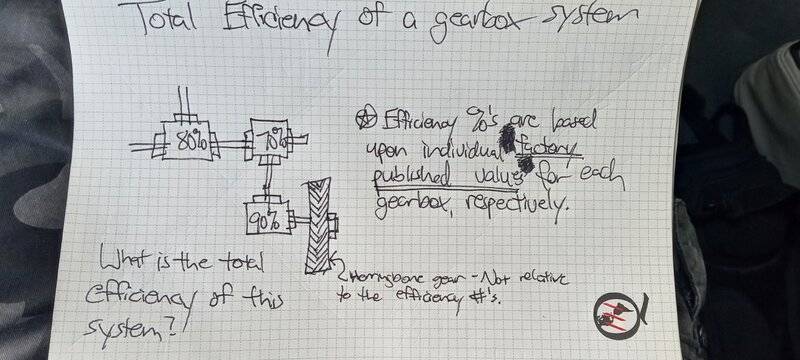 Total Efficiency of a gearbox system
80%
70%
90%
⍟ Efficiency %'s are based
upon individual factory
published values for each
gearbox, respectively.
What is the total
efficiency of this
system?
Herringbone gear - Not relative
to the efficiency #'s.